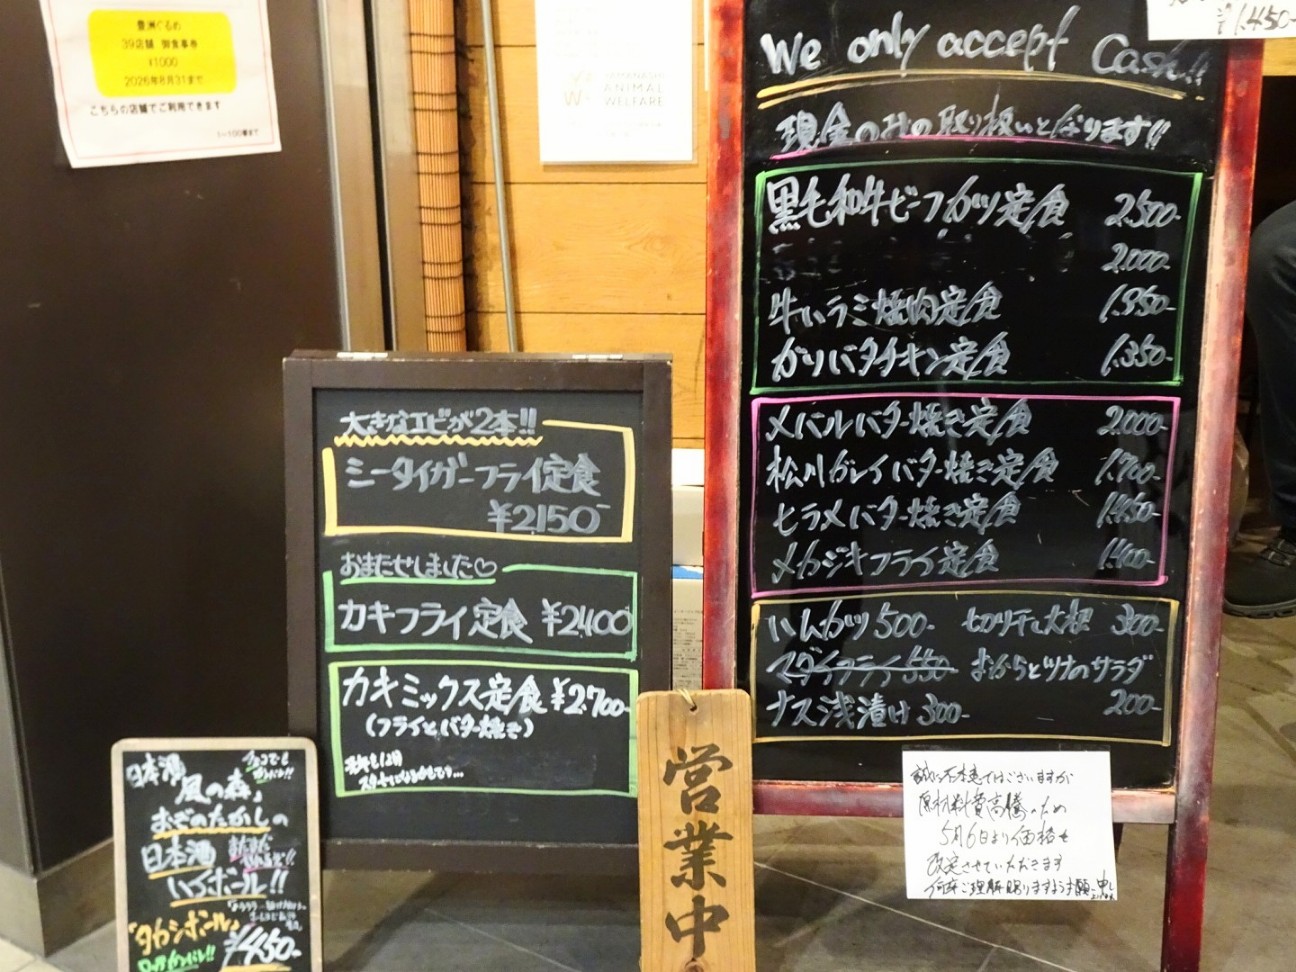 豊洲ぐるめ
39店舗 御食事券
¥1000
2026年8月31まで
こちらの店舗でご利用できます
YAMANASHI
ANIMAL
WELFARE
1.450-
We only accept Cash!!
現金のみの取り扱いとなります!!
黒毛和牛ビーフカツ定食 2.500-
2.000-
牛ハラミ焼肉定食 1.350-
ガリバタチキン定食 1.350-
メバルバター焼き定食 2.000-
松川ガレイバター焼き定食 1.700-
ヒラメバター焼き定食 1.450-
メカジキフライ定食 1.400-
ハムカツ 500- 切り干し大根 300-
マダイフライ 550 おからとツナのサラダ
ナス浅漬け 300- 200-
大きなエビが2本!!
ミータイガーフライ定食
¥2150-
おまたせしました♡
カキフライ定食 ¥2400
カキミックス定食 ¥2.700-
(フライとバター焼き)
日本酒
風の森」
おぞのたかしの
日本酒
ハイボール!!
「タカシボール」
¥450-
営業中
誠に不本意ではございますが
原材料費高騰のため
5月6日より価格を
改定させていただきます
何卒ご理解賜りますようお願い申し